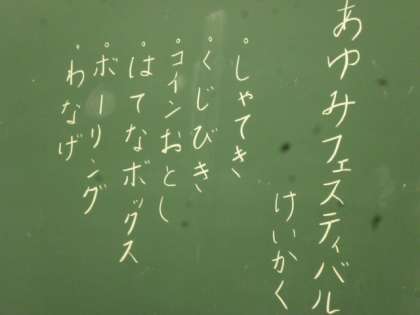 あゆみフェスティバル
けいかく
。しゃてき
。くじびき
。コインおとし
。はてなボックス
。ボーリング
。わなげ